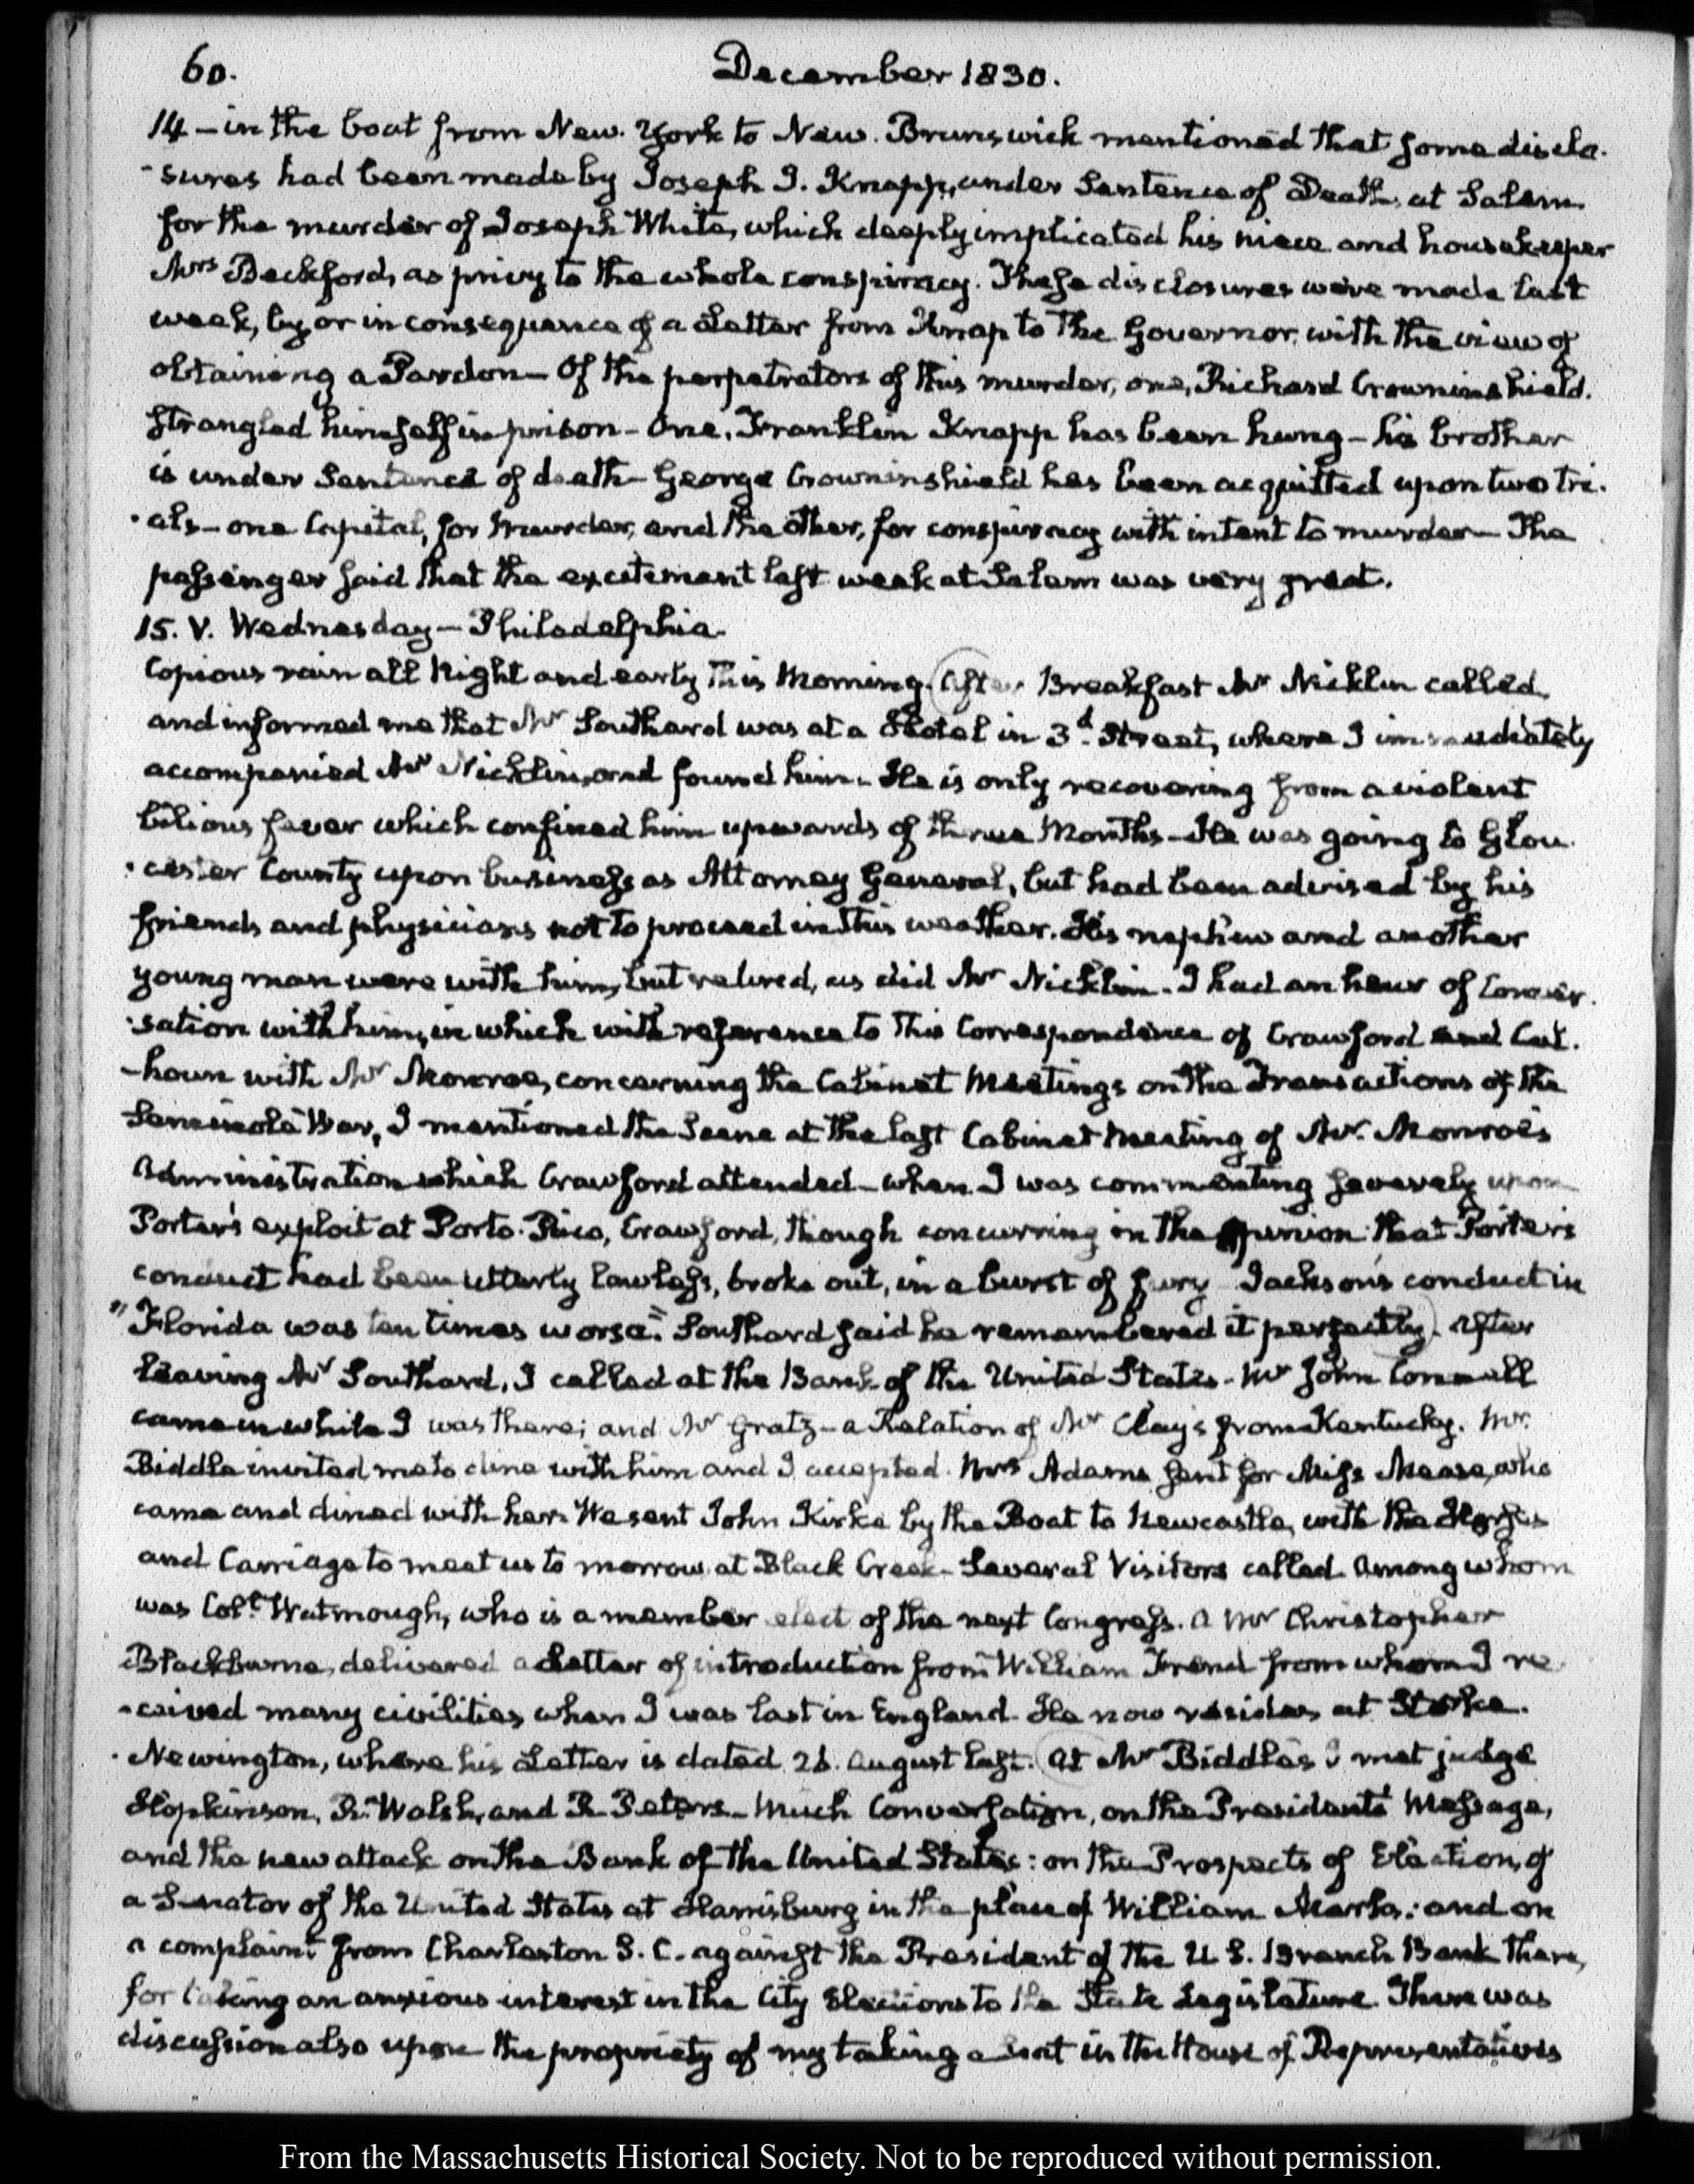 60.
December 1830.
14 – in the boat from New. York to New. Brunswick mentioned that some disclo-
-sures had been made by Joseph J. Knapp, under Sentence of Death, at Salem
for the murder of Joseph White, which deeply implicated his niece and housekeeper
Mrs Beckford, as privy to the whole conspiracy. These disclosures were made last
week, by, or in consequence of a Letter from Knap to the Governor, with the view of
obtaining a Pardon – Of the perpetrators of this murder, one, Richard Crowninshield.
strangled himself in prison – One, Franklin Knapp has been hung – his brother
is under Sentence of death – George Crowninshield has been acquitted upon two tri-
-als – one Capital, for Murder, and the other, for conspiracy with intent to murder – The
passenger said that the excitement last week at Salem was very great.
15. V. Wednesday – Philadelphia.
Copious rain all Night and early this Morning. After Breakfast Mr Nicklin called,
and informed me that Mr Southard was at a Hotel in 3d. Street, where I immediately
accompanied Mr Nicklin, and found him – He is only recovering from a violent
bilious fever which confined him upwards of three Months – He was going to Glou-
-cester County upon business as Attorney General, but had been advised by his
friends and physicians not to proceed in this weather. His nephew and another
young man were with him, but retired, as did Mr Nicklin – I had an hour of Conver-
-sation with him, in which with reference to this Correspondence of Crawford and Cal-
-houn with Mr Monroe, concerning the Cabinet Meetings on the Transactions of the
Seminole War, I mentioned the Scene at the last Cabinet Meeting of Mr. Monroe's
Administration which Crawford attended – when I was commenting severely upon
Porter's exploit at Porto-Rico, Crawford, though concurring in the opinion that Porter's
conduct had been utterly lawless, broke out, in a burst of fury Jackson's conduct in
"Florida was ten times worse." Southard said he remembered it perfectly. After
leaving Mr Southard, I called at the Bank of the United States – Mr John Connell
came in while I was there; and Mr Gratz – a Relation of Mr Clay's from Kentucky. Mr.
Biddle invited me to dine with him and I accepted. Mrs Adams sent for Miss Mease, who
came and dined with her. We sent John Kirke by the Boat to Newcastle, with the Horses
and Carriage to meet us to morrow at Black Creek – Several Visitors called. Among whom
was Coll. Watmough, who is a member elect of the next Congress. A Mr Christopher
Blackburne, delivered a Letter of introduction from William Frend from whom I re-
-ceived many civilities when I was last in England. He now resides at Stoke.
-Newington, where his Letter is dated 26. August last. At Mr Biddle's I met judge
Hopkinson, R. Walsh, and R. Peters – Much Conversation, on the President's Message,
and the new attack on the Bank of the United States: on the Prospects of Election, of
a Senator of the United States at Harrisburg in the place of William Marks: and on
a complaint from Charleston S. C. against the President of the U S. Branch Bank there,
for taking an anxious interest in the City Elections to the State Legislature. There was
discussion also upon the propriety of my taking a seat in the House of Representatives
From the Massachusetts Historical Society. Not to be reproduced without permission.